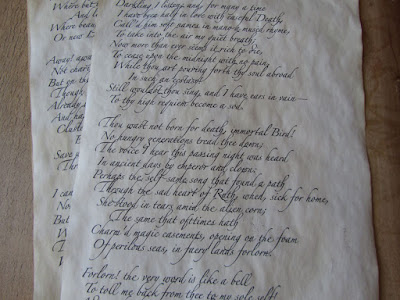 Where but
And l
Where beau
Or new
Away! away
Not char
But on th
Though
Already
And ha
Clust
Save
I can
No
But
W
Darkling I listen; and, for many a time
I have been half in love with easeful Death,
Call'd him soft names in many a mused rhyme,
To take into the air my quiet breath;
Now more than ever seems it rich to die,
To cease upon the midnight with no pain,
While thou art pouring forth thy soul abroad
In such an ecstasy!
Still wouldst thou sing, and I have ears in vain—
To thy high requiem become a sod.
Thou wast not born for death, immortal Bird!
No hungry generations tread thee down;
The voice I hear this passing night was heard
In ancient days by emperor and clown:
Perhaps the self-same song that found a path
Through the sad heart of Ruth, when, sick for home,
She stood in tears amid the alien corn;
The same that ofttimes hath
Charm'd magic casements, opening on the foam
Of perilous seas, in faery lands forlorn.
Forlorn! the very word is like a bell
To toll me back from thee to my sole self!